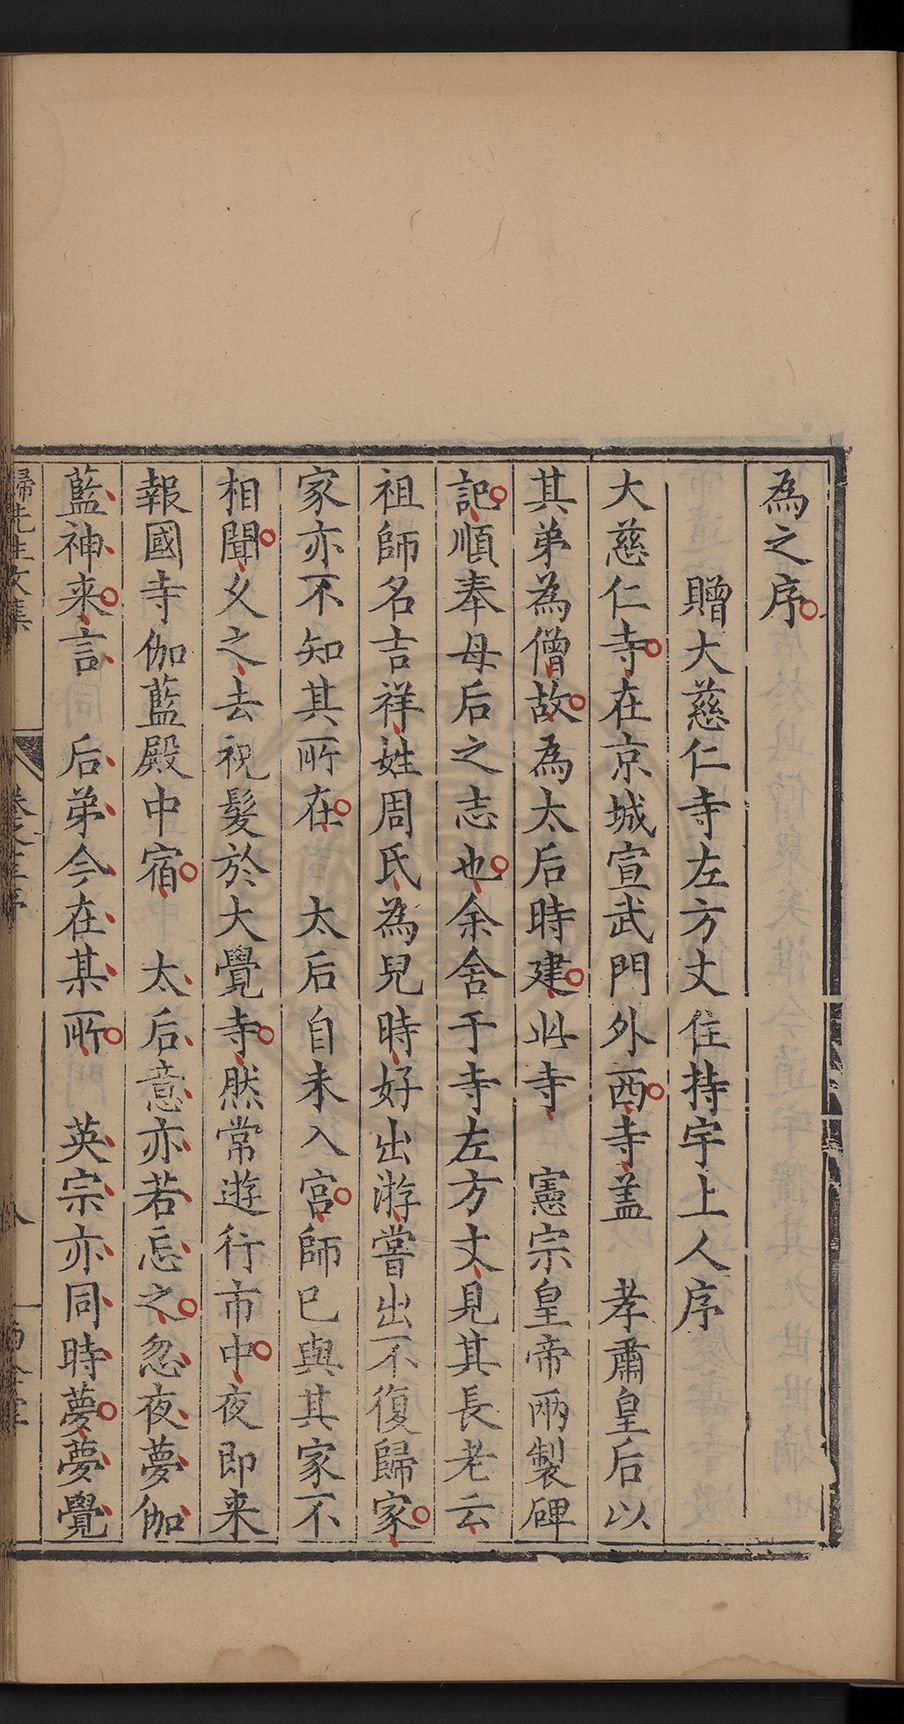 為之序
贈大慈仁寺左方丈住持宇上人序
大慈仁寺在京城宣武門外西寺盖　孝肅皇后以
其弟為僧故為太后時建此寺　憲宗皇帝兩製碑
記順奉母后之志也余舍于寺左方丈見其長老云
祖師名吉祥姓周氏為兒時好出游嘗出不復歸家
家亦不知其所在　太后自未入宫師已與其家不
相聞久之去祝髮於大覺寺然常遊行市中夜即来
報國寺伽藍殿中宿　太后意亦若忘之忽夜夢伽
藍神来言　后弟今在某所　英宗亦同時夢夢覺
歸先生文集
八